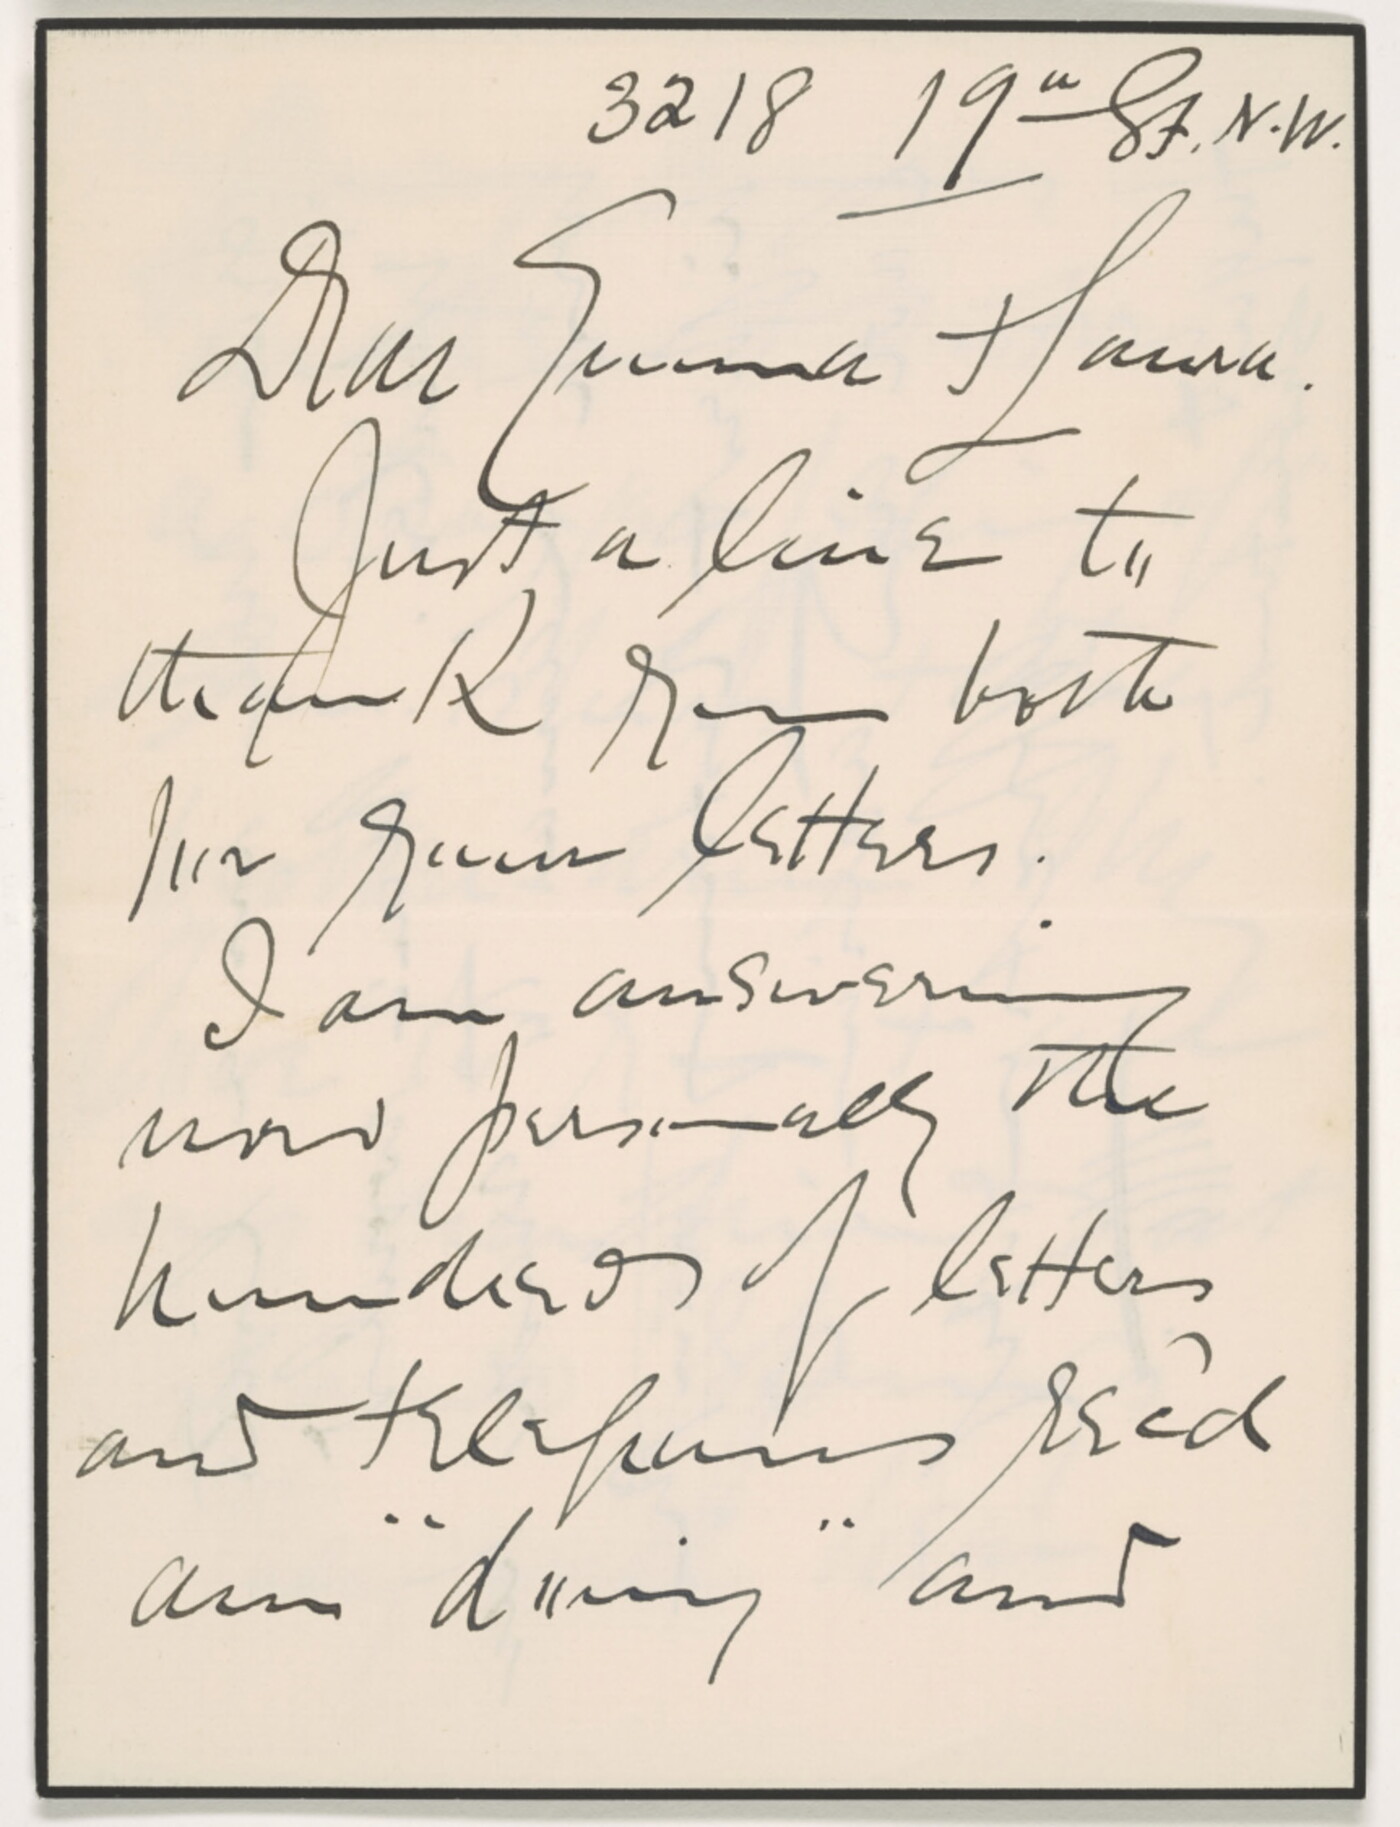 3218 19th St. N.W.
Dear Emma + Laura.
Just a line to
thank you both
for your letters.
I am answering
now personally the
hundreds of letters
and telegrams rec'd
am "doing" and